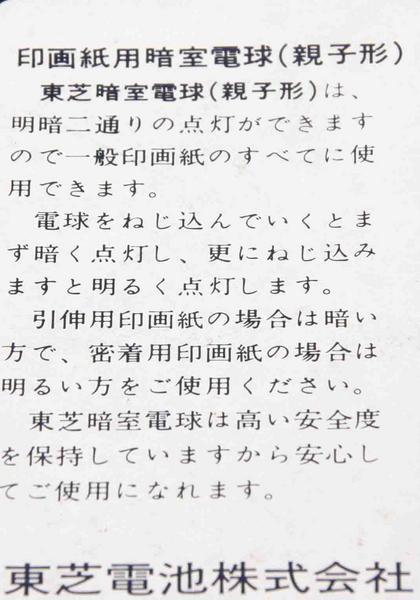 印画紙用暗室電球(親子形)
東芝暗室電球(親子形)は、
明暗二通りの点灯ができます
ので一般印画紙のすべてに使
用できます。
電球をねじ込んでいくとま
ず暗く点灯し、更にねじ込み
ますと明るく点灯します。
引伸用印画紙の場合は暗い
方で、密着用印画紙の場合は
明るい方をご使用ください。
東芝暗室電球は高い安全度
を保持していますから安心し
てご使用になれます。
東芝電池株式会社